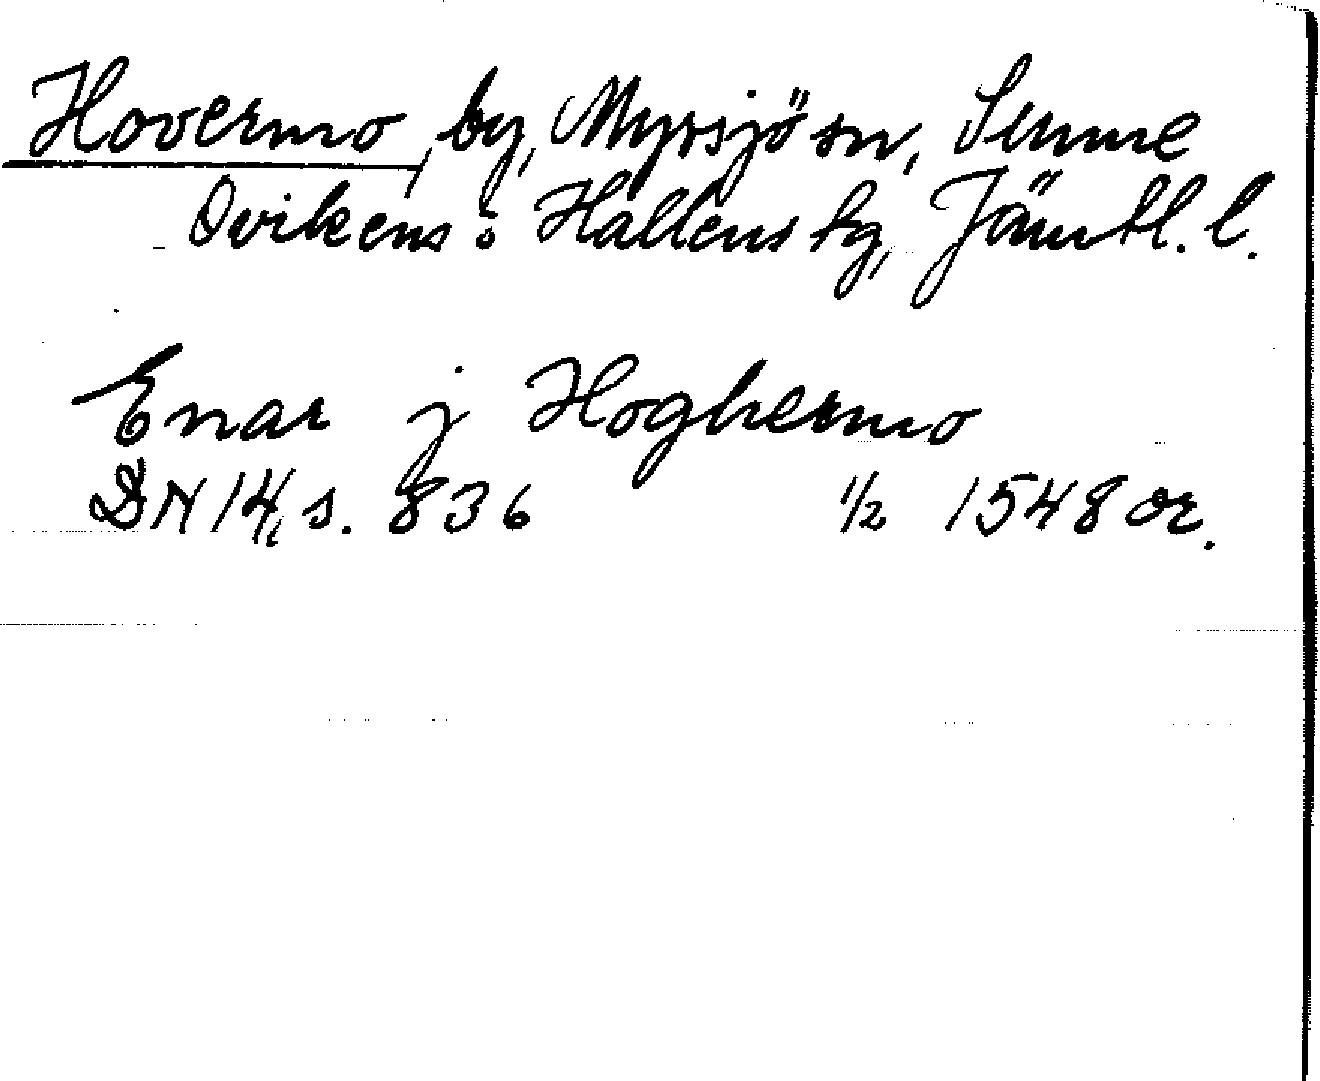 Hovermo, by, Myssjö sn, Sunne
Ovikens o Hallens tg, Jämtl. l.
Enar j Hoghermo
DN 14, s. 836 1/2 1548 or.